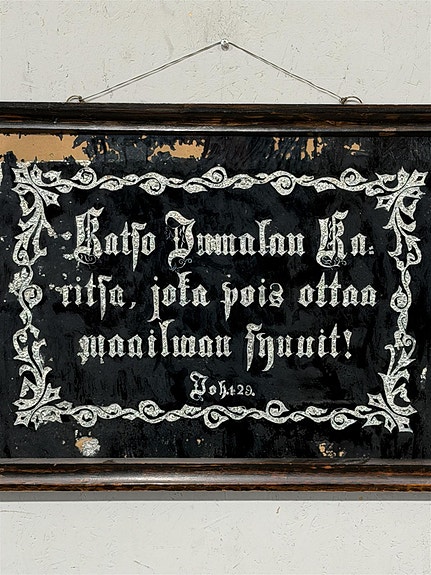 Katso Jumalan Ka-
ritsa, joka pois ottaa
maailman synnit!
Joh. 1.29.